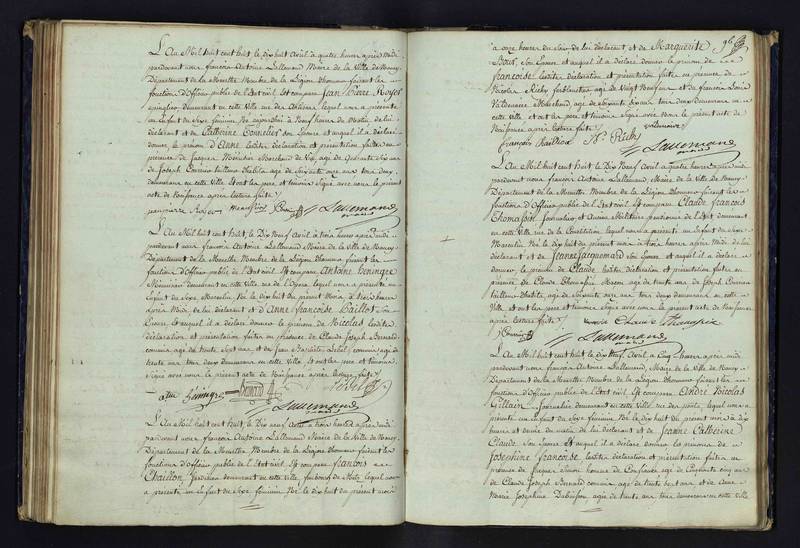 L'An Mil huit cent huit le dix huit Avril à quatre heures après midi
pardevant nous françois Antoine Lallemand Maire de la Ville de Nancy
Département de la Meurthe Membre de la Légion d'honneur faisant les
fonctions d'Officier public de l'Etat civil Est comparu Jean Pierre Royer
épinglier demeurant en cette Ville rue des Artisans lequel nous a présenté
un Enfant du Sexe féminin Né aujourd'hui à Neuf heures du Matin de lui
déclarant et de Catherine Cornelier son Epouse et auquel il a déclaré
donner le prénom de Anne lesdites déclaration et présentation faites en
présence de Jacques Marchand de Vin, agé de Quarante Six ans
de Joseph agé de Soixante onze ans tous deux
demeurans en cette Ville Et ont les père et témoins Signé avec nous le présent
acte de Naissance après lecture faite
Royer Lallemand
L'An Mil huit cent huit, le Dix Neuf Avril à trois heures après midi
pardevant nous françois Antoine Lallemand Maire de la Ville de Nancy
Département de la Meurthe Membre de la Légion d'honneur faisant les
fonctions d'Officier public de l'Etat civil Est comparu Antoine Heninger
Menuisier demeurant en cette Ville rue de lequel nous a présenté un
Enfant du Sexe Masculin Né le dix huit du présent Mois à heures
après Midi, de lui déclarant et d'Anne françoise Taillot Son
Epouse Et auquel il a déclaré donner le prénom de Nicolas lesdites
déclaration et présentation faites en présence de Claude Joseph Bernard
commis agé de trente Sept ans et de Jean Baptiste commis agé de
trente ans tous deux demeurans en cette Ville Et ont les père et témoins
Signé avec nous le présent acte de Naissance après lecture faite
Heninger Bernard
Lallemand
L'An Mil huit cent huit, le Dix neuf Avril à trois heures après midi
pardevant nous françois Antoine Lallemand Maire de la Ville de Nancy
Département de la Meurthe Membre de la Légion d'honneur faisant les
fonctions d'Officier public de l'Etat civil Est comparu françois
Chaillon, Jardinier demeurant en cette Ville, faubourg de Metz lequel nous
a présenté un Enfant du Sexe féminin Né le dix huit du présent mois
96
à onze heures du Soir de lui déclarant et de Marguerite
Bour, Son Epouse et auquel il a déclaré donner le prénom de
françoise lesdites déclaration et présentation faites en présence de
Nicolas Richy ferblantier agé de Vingt Neuf ans et de françois Louis
Marchand agé de Soixante ans tous deux demeurans en
cette Ville et ont les père et témoins Signé avec Nous le présent acte de
Naissance après lecture faite
françois Chaillon N. Richy
Lallemand
L'An Mil huit cent huit le Dix Neuf Avril à quatre heures après midi
pardevant nous françois Antoine Lallemand, Maire de la Ville de Nancy
Département de la Meurthe Membre de la Légion d'honneur faisant les
fonctions d'Officier public de l'Etat civil Est comparu Claude françois
Thomassin, Journalier et ancien Militaire pensionné de l'Etat demeurant
en cette Ville rue de la Constitution lequel nous a présenté un Enfant du Sexe
Masculin Né le dix huit du présent mois à trois heures après Midi de lui
déclarant et de Jeanne Jacquemard Son Epouse et auquel il a déclaré
donner le prénom de Claude lesdites déclaration et présentation faites en
présence de Claude Thomassin Maçon agé de trente ans de Joseph
tailleur d'habits, agé de Soixante onze ans tous deux demeurans en cette
Ville Et ont les père et témoins Signé avec nous le présent acte de Naissance
après lecture faite
Claude Thomassin
Lallemand
L'An Mil huit cent huit le dix Neuf Avril à cinq heures après midi
pardevant nous françois Antoine Lallemand, Maire de la Ville de Nancy
Département de la Meurthe Membre de la Légion d'honneur faisant les
fonctions d'Officier public de l'Etat civil Est comparu André Nicolas
Gillain Journalier demeurant en cette Ville rue des ponts, lequel nous a
présenté un Enfant du Sexe féminin Né le dix huit du présent mois à dix
heures et demie du matin de lui déclarant et de Jeanne Catherine
Claude Son Epouse Et auquel il a déclaré donner les prénoms de
Josephine françoise lesdites déclaration et présentation faites en
présence de agé de Cinquante cinq ans
de Claude Joseph Bernard commis agé de trente Sept ans, et de Anne
Marie Josephine agée de trente ans tous demeurans en cette Ville